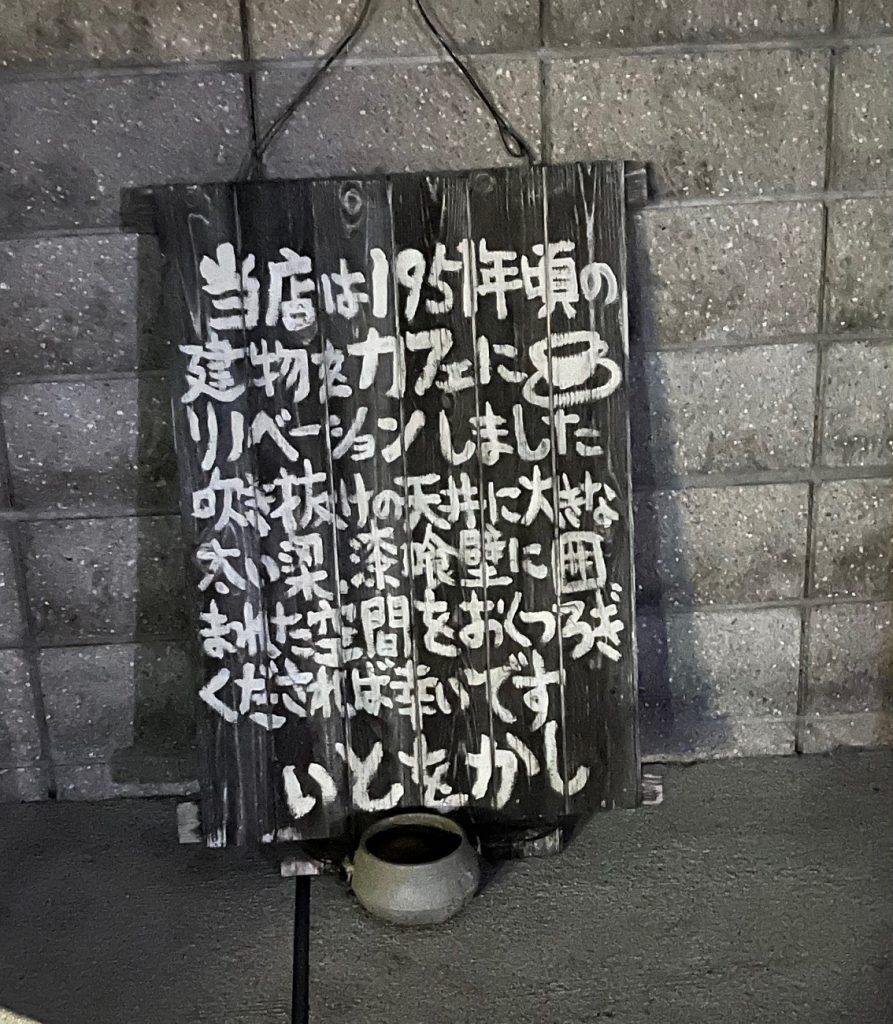 当店は1951年頃の
建物をカフェに
リノベーションしました
吹き抜けの天井に大きな
太い梁、漆喰壁に囲
まれた空間をおくつろぎ
くだされば幸いです
いとをかし